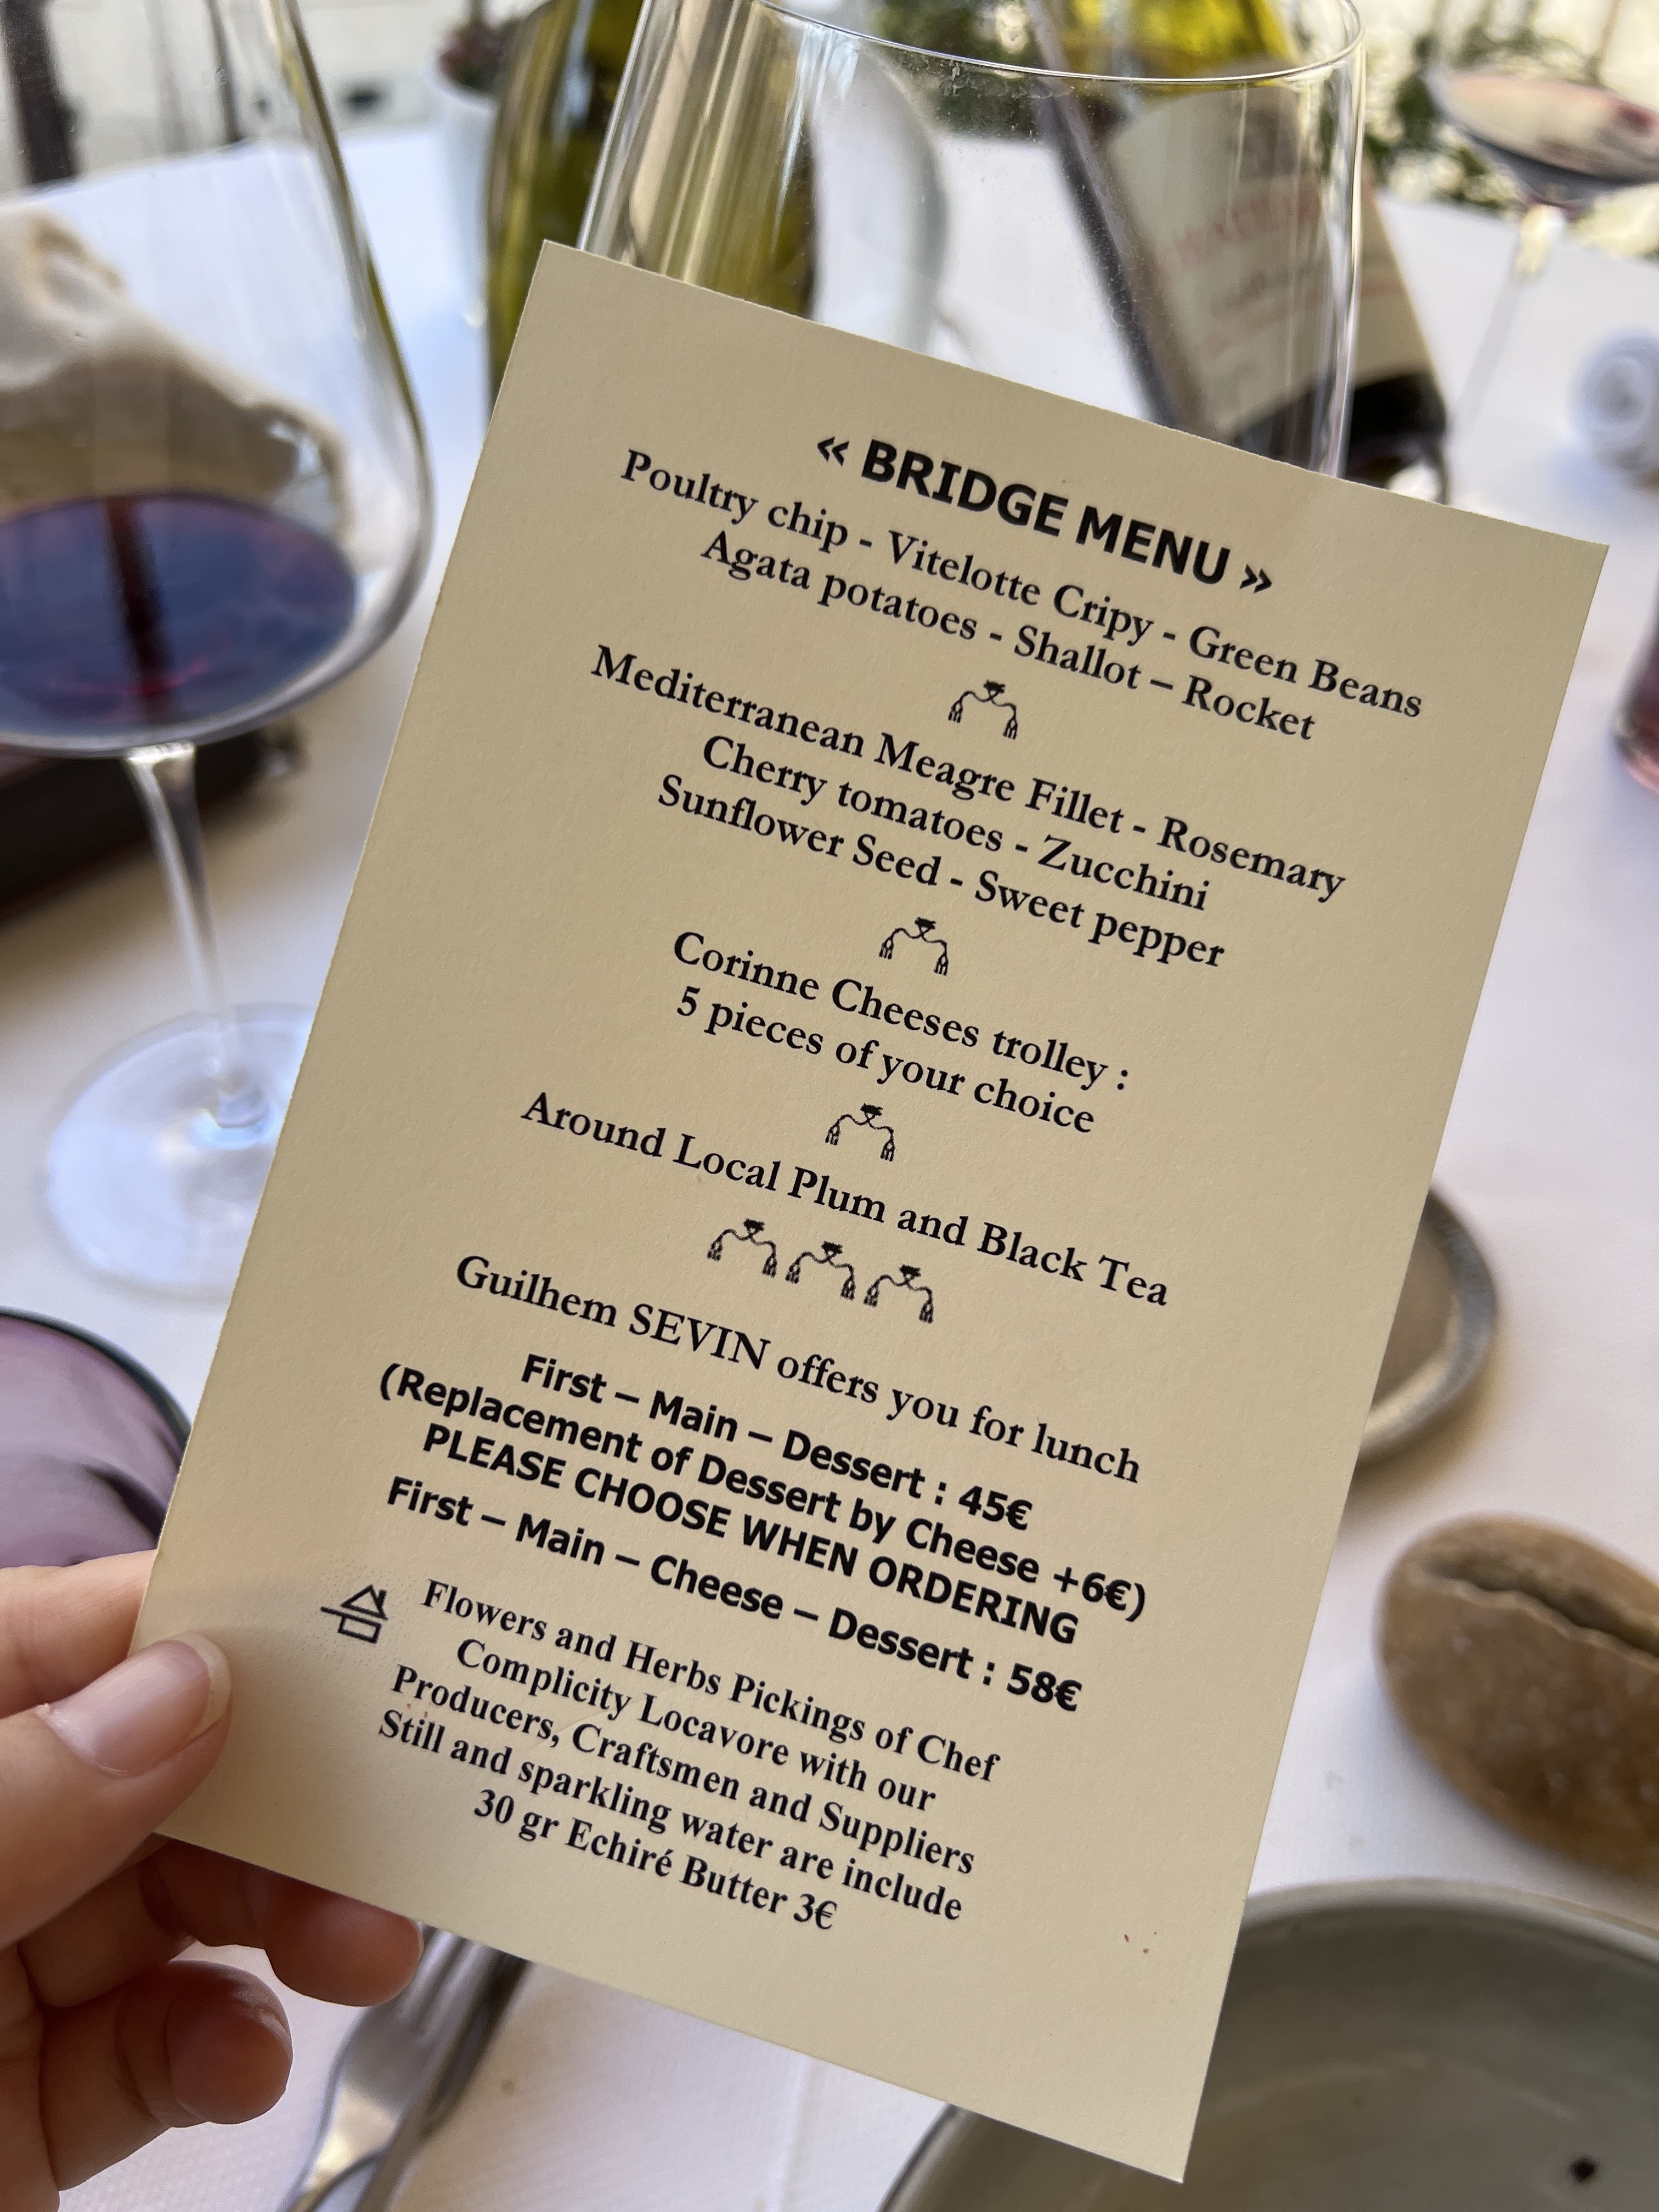 « BRIDGE MENU »
Poultry chip - Vitelotte Cripy - Green Beans
Agata potatoes - Shallot – Rocket
Mediterranean Meagre Fillet - Rosemary
Cherry tomatoes - Zucchini
Sunflower Seed - Sweet pepper
Corinne Cheeses trolley :
5 pieces of your choice
Around Local Plum and Black Tea
Guilhem SEVIN offers you for lunch
First – Main – Dessert : 45€
(Replacement of Dessert by Cheese +6€)
PLEASE CHOOSE WHEN ORDERING
First – Main – Cheese – Dessert : 58€
Flowers and Herbs Pickings of Chef
Complicity Locavore with our
Producers, Craftsmen and Suppliers
Still and sparkling water are include
30 gr Echiré Butter 3€